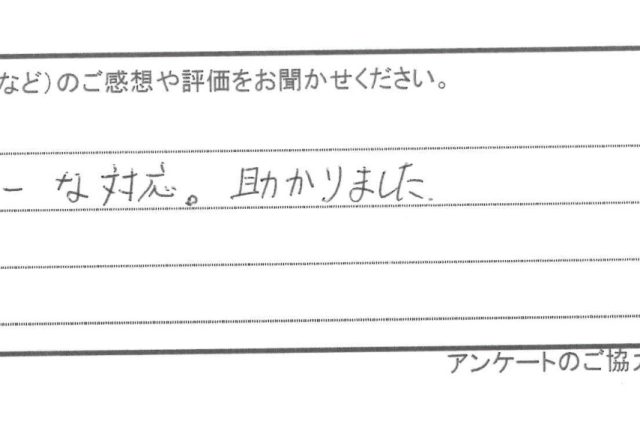 など）のご感想や評価をお聞かせください。
ーな対応。助かりました.
アンケートのご協